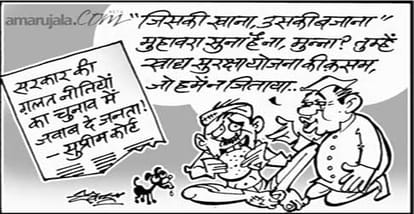 amarujala.com
"जिसकी खाना, उसकी बजाना"
मुहावरा सुना है ना, मुन्ना? तुम्हें
खाद्य सुरक्षा योजना की क़सम,
जो हमें न जिताया..
सरकार की
ग़लत नीतियों
का चुनाव में
जवाब दे जनता!
– सुप्रीम कोर्ट